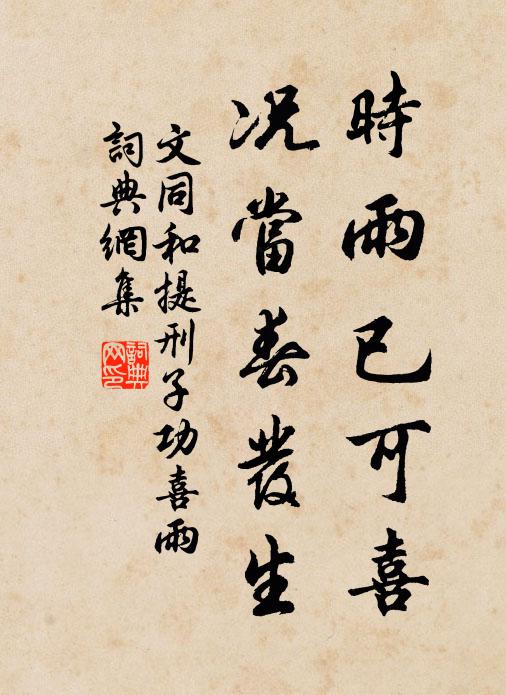 時雨已可喜
況當春發生
文同和提刑子功喜雨
詞典網集
詞典网印